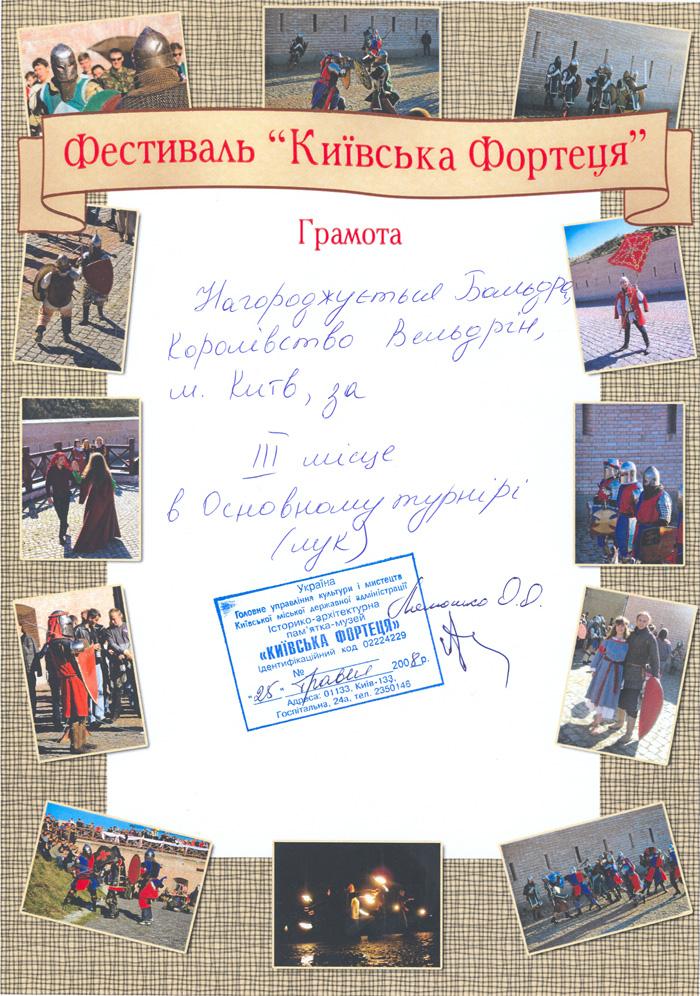 Фестиваль “Київська Фортеця”
Грамота
Нагороджується Бальдра,
Королівство Вельдрін,
м. Київ, за
III місце
в Основному турнірі
(лук)
Україна
Головне управління культури і мистецтв
Київської міської державної адміністрації
Історико-архітектурна
пам'ятка-музей
«КИЇВСЬКА ФОРТЕЦЯ»
ідентифікаційний код 02224229
№
"25" травня 2008р.
Адреса: 01133, Київ-133,
Госпітальна, 24а, тел. 2350146
О.О.